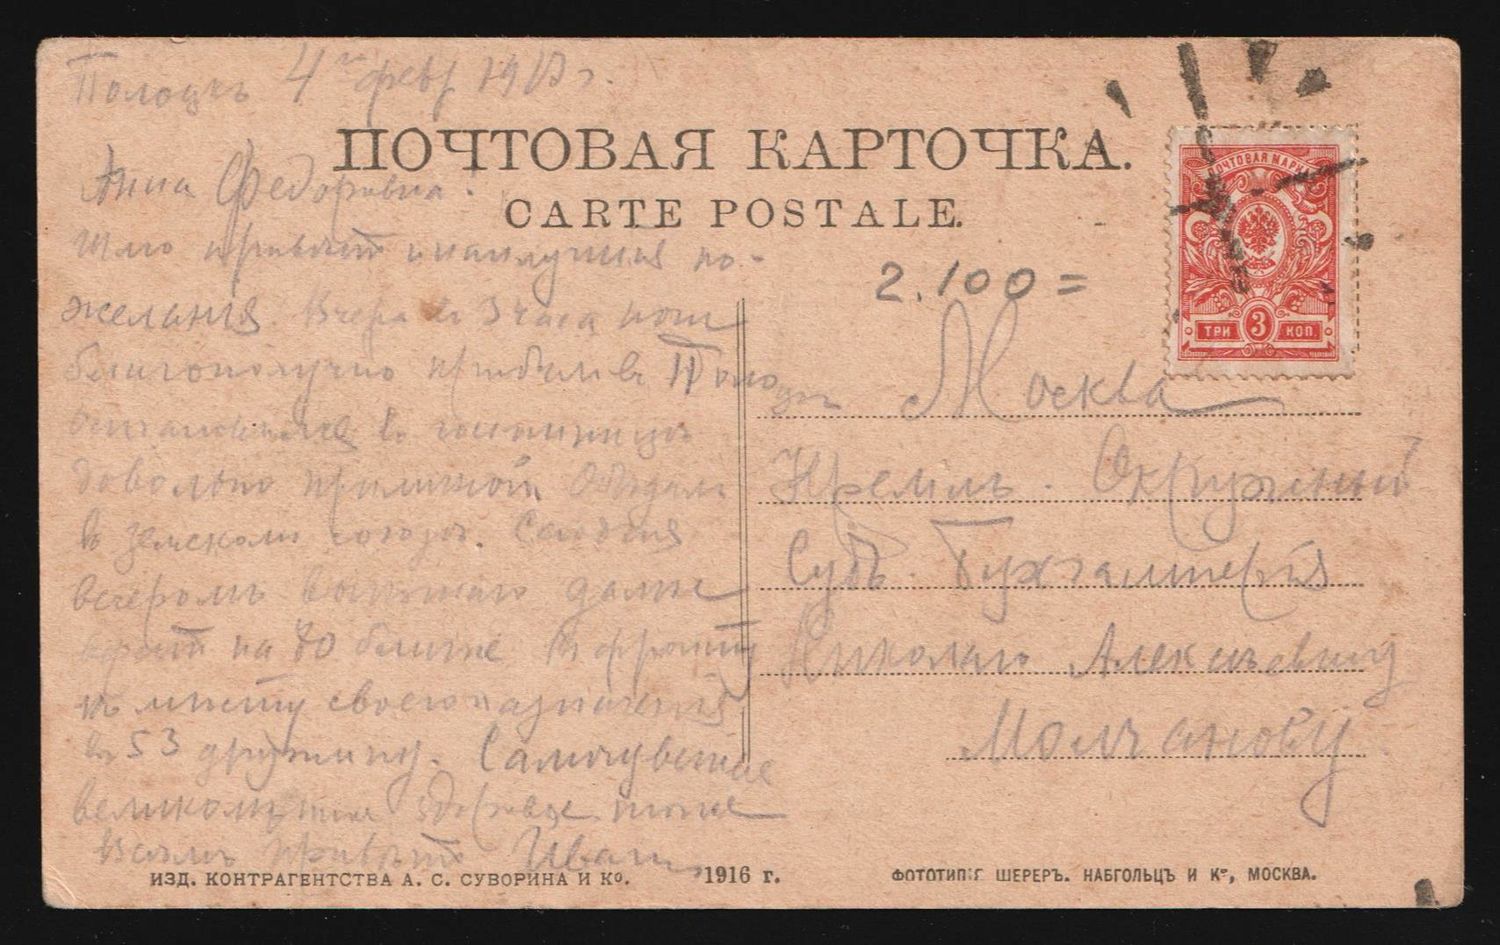 Полоцкъ 4го февр 1917 г.
ПОЧТОВАЯ КАРТОЧКА.
CARTE POSTALE.
ПОЧТОВАЯ МАРКА
ТРИ 3 КОП.
2.100=
Анна Федоровна.
Шлю привѣтъ и наилучшія по-
желанія. Вчера въ 3 часа ночи
благополучно прибыли въ Полоцкъ
въ гостинницѣ
довольно приличной Обѣдали
въ земскомъ союзѣ. Сегодня
вечеромъ выѣзжаю далѣе
верстъ на 70 ближе къ фронту
къ мѣсту своего назначенія
въ 53 дружину. Самочувствіе
великолѣпное здоровье тоже
Всѣмъ привѣтъ Иванъ
Москва
Кремль. Окружный
Судъ. Бухгалтерія
Николаю Алексѣевичу
Молчанову
ИЗД. КОНТРАГЕНТСТВА А. С. СУВОРИНА И Ко. 1916 г.
ФОТОТИПІЯ ШЕРЕРЪ. НАБГОЛЬЦЪ И Ко, МОСКВА.